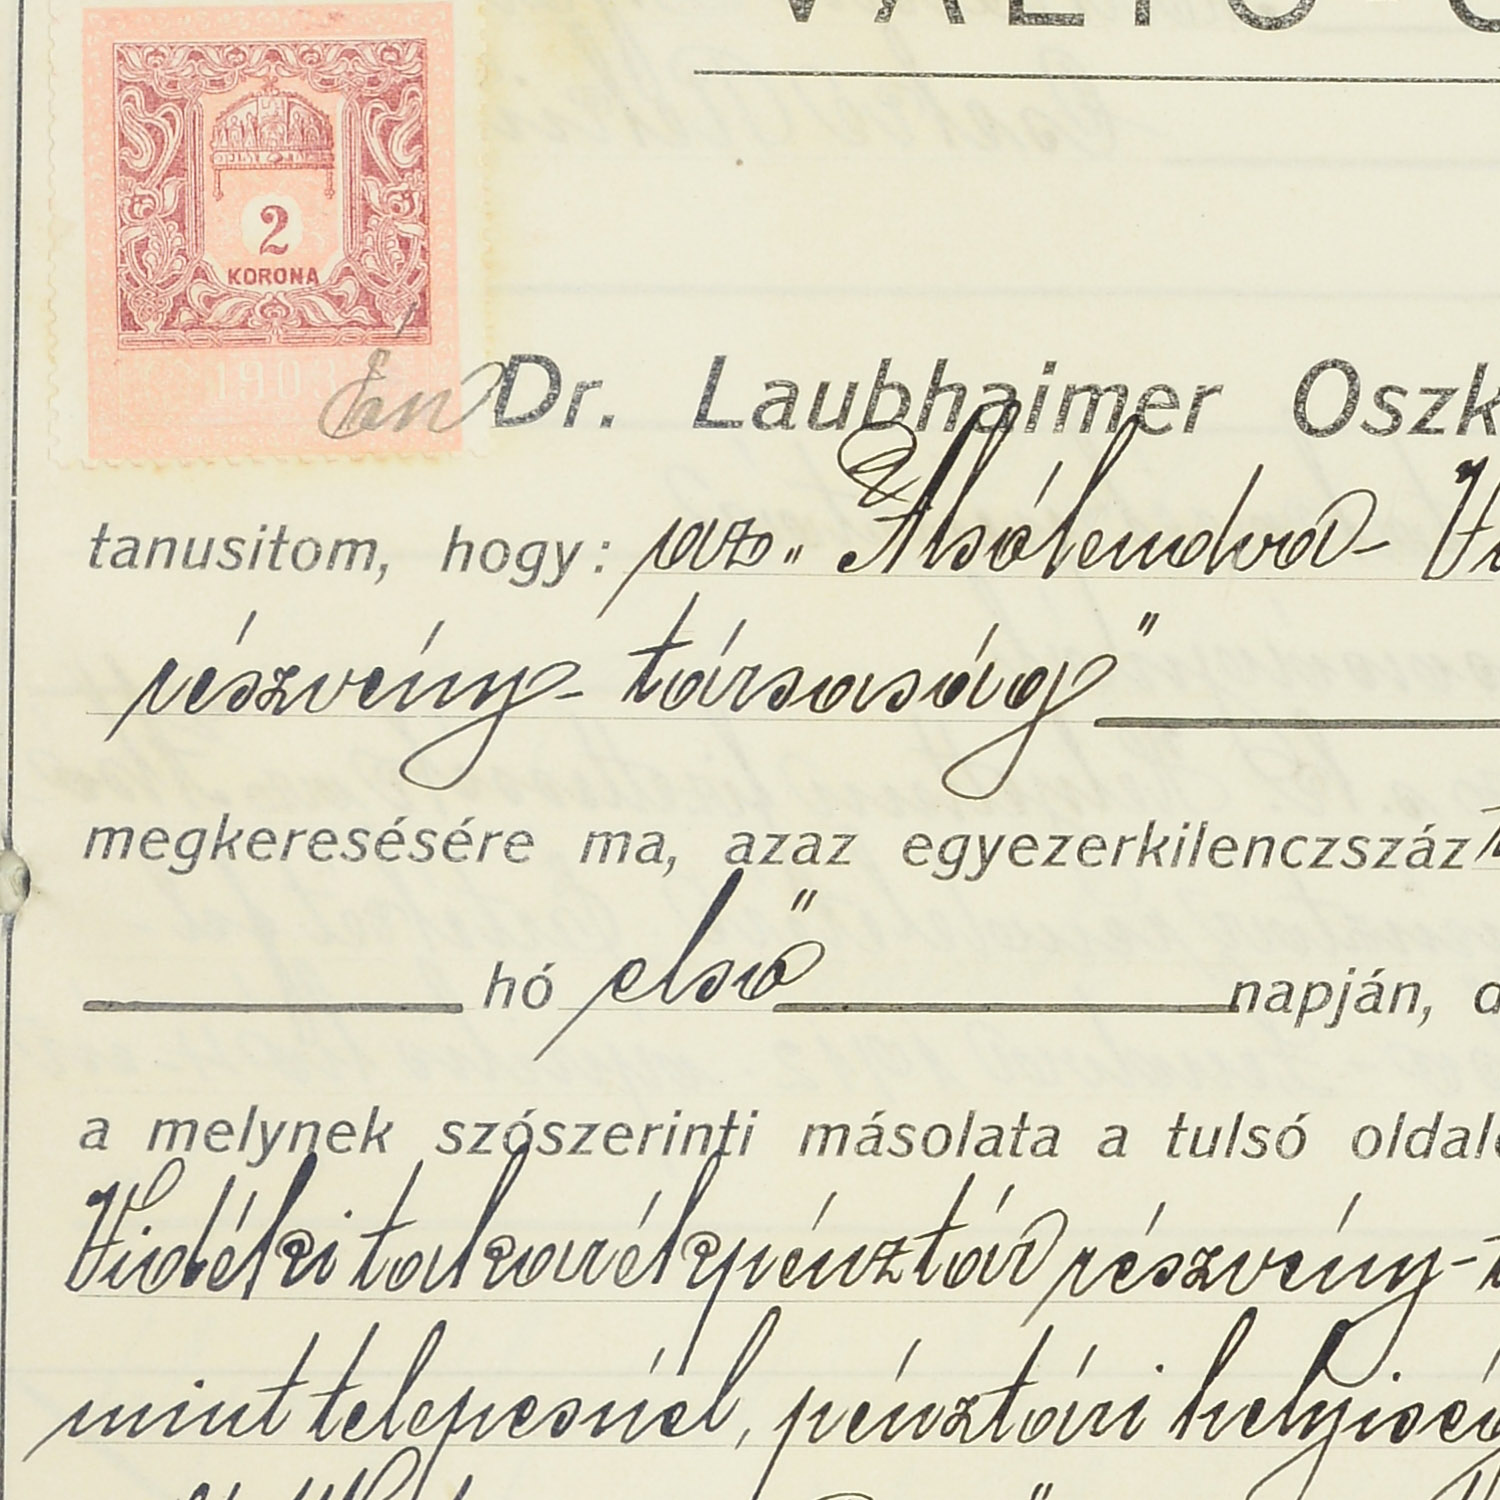 VÁLTÓ-Ó
2
KORONA
1903
Én Dr. Laubhaimer Oszk
tanusitom, hogy: az „Alsólendva-
részvény-társaság"
megkeresésére ma, azaz egyezerkilenczszáz
hó első napján,
a melynek szószerinti másolata a tulsó oldal
Vidéki takarékpénztár részvény-t
mint telepesnél, pénztári helyisé